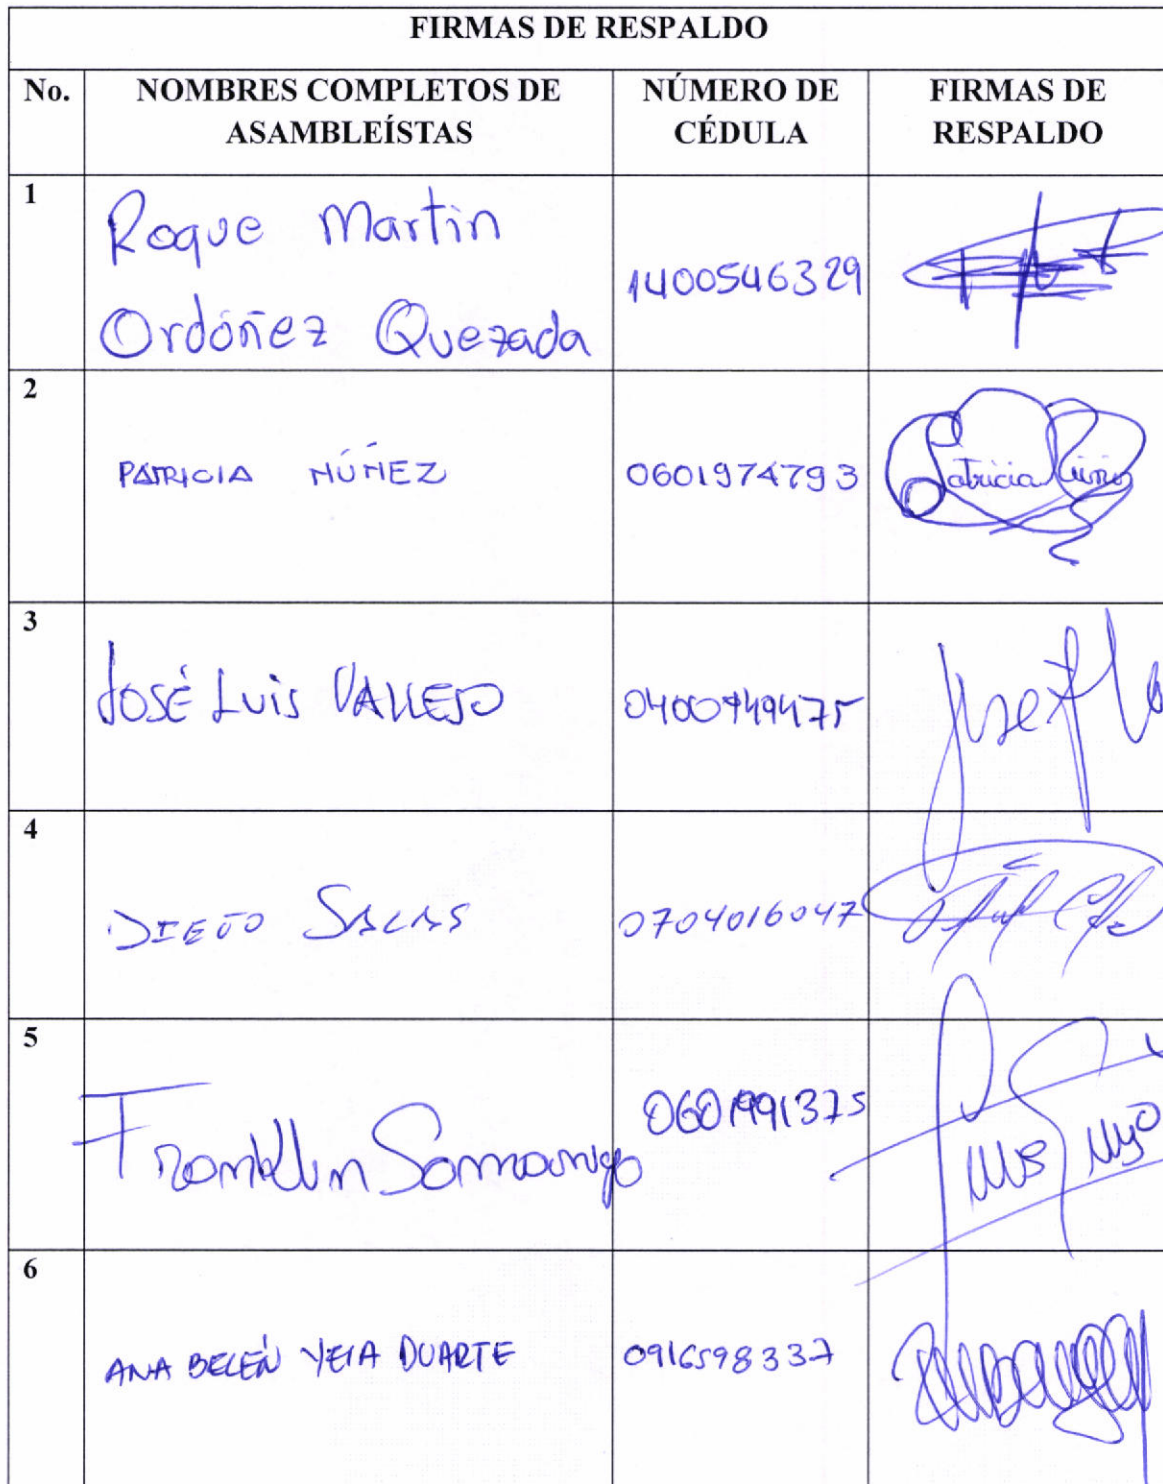 FIRMAS DE RESPALDO
No.
NOMBRES COMPLETOS DE
ASAMBLEÍSTAS
NÚMERO DE
CÉDULA
FIRMAS DE
RESPALDO
1
Roque Martin
Ordóñez Quezada
1400546329
2
PATRICIA NÚÑEZ
0601974793
Patricia Núñez
3
JOSÉ LUIS VALLEJO
0400749475
4
DIEGO SALAS
0704016047
5
Franklin Samaniego
0601991375
6
ANA BELÉN YELA DUARTE
0916598337